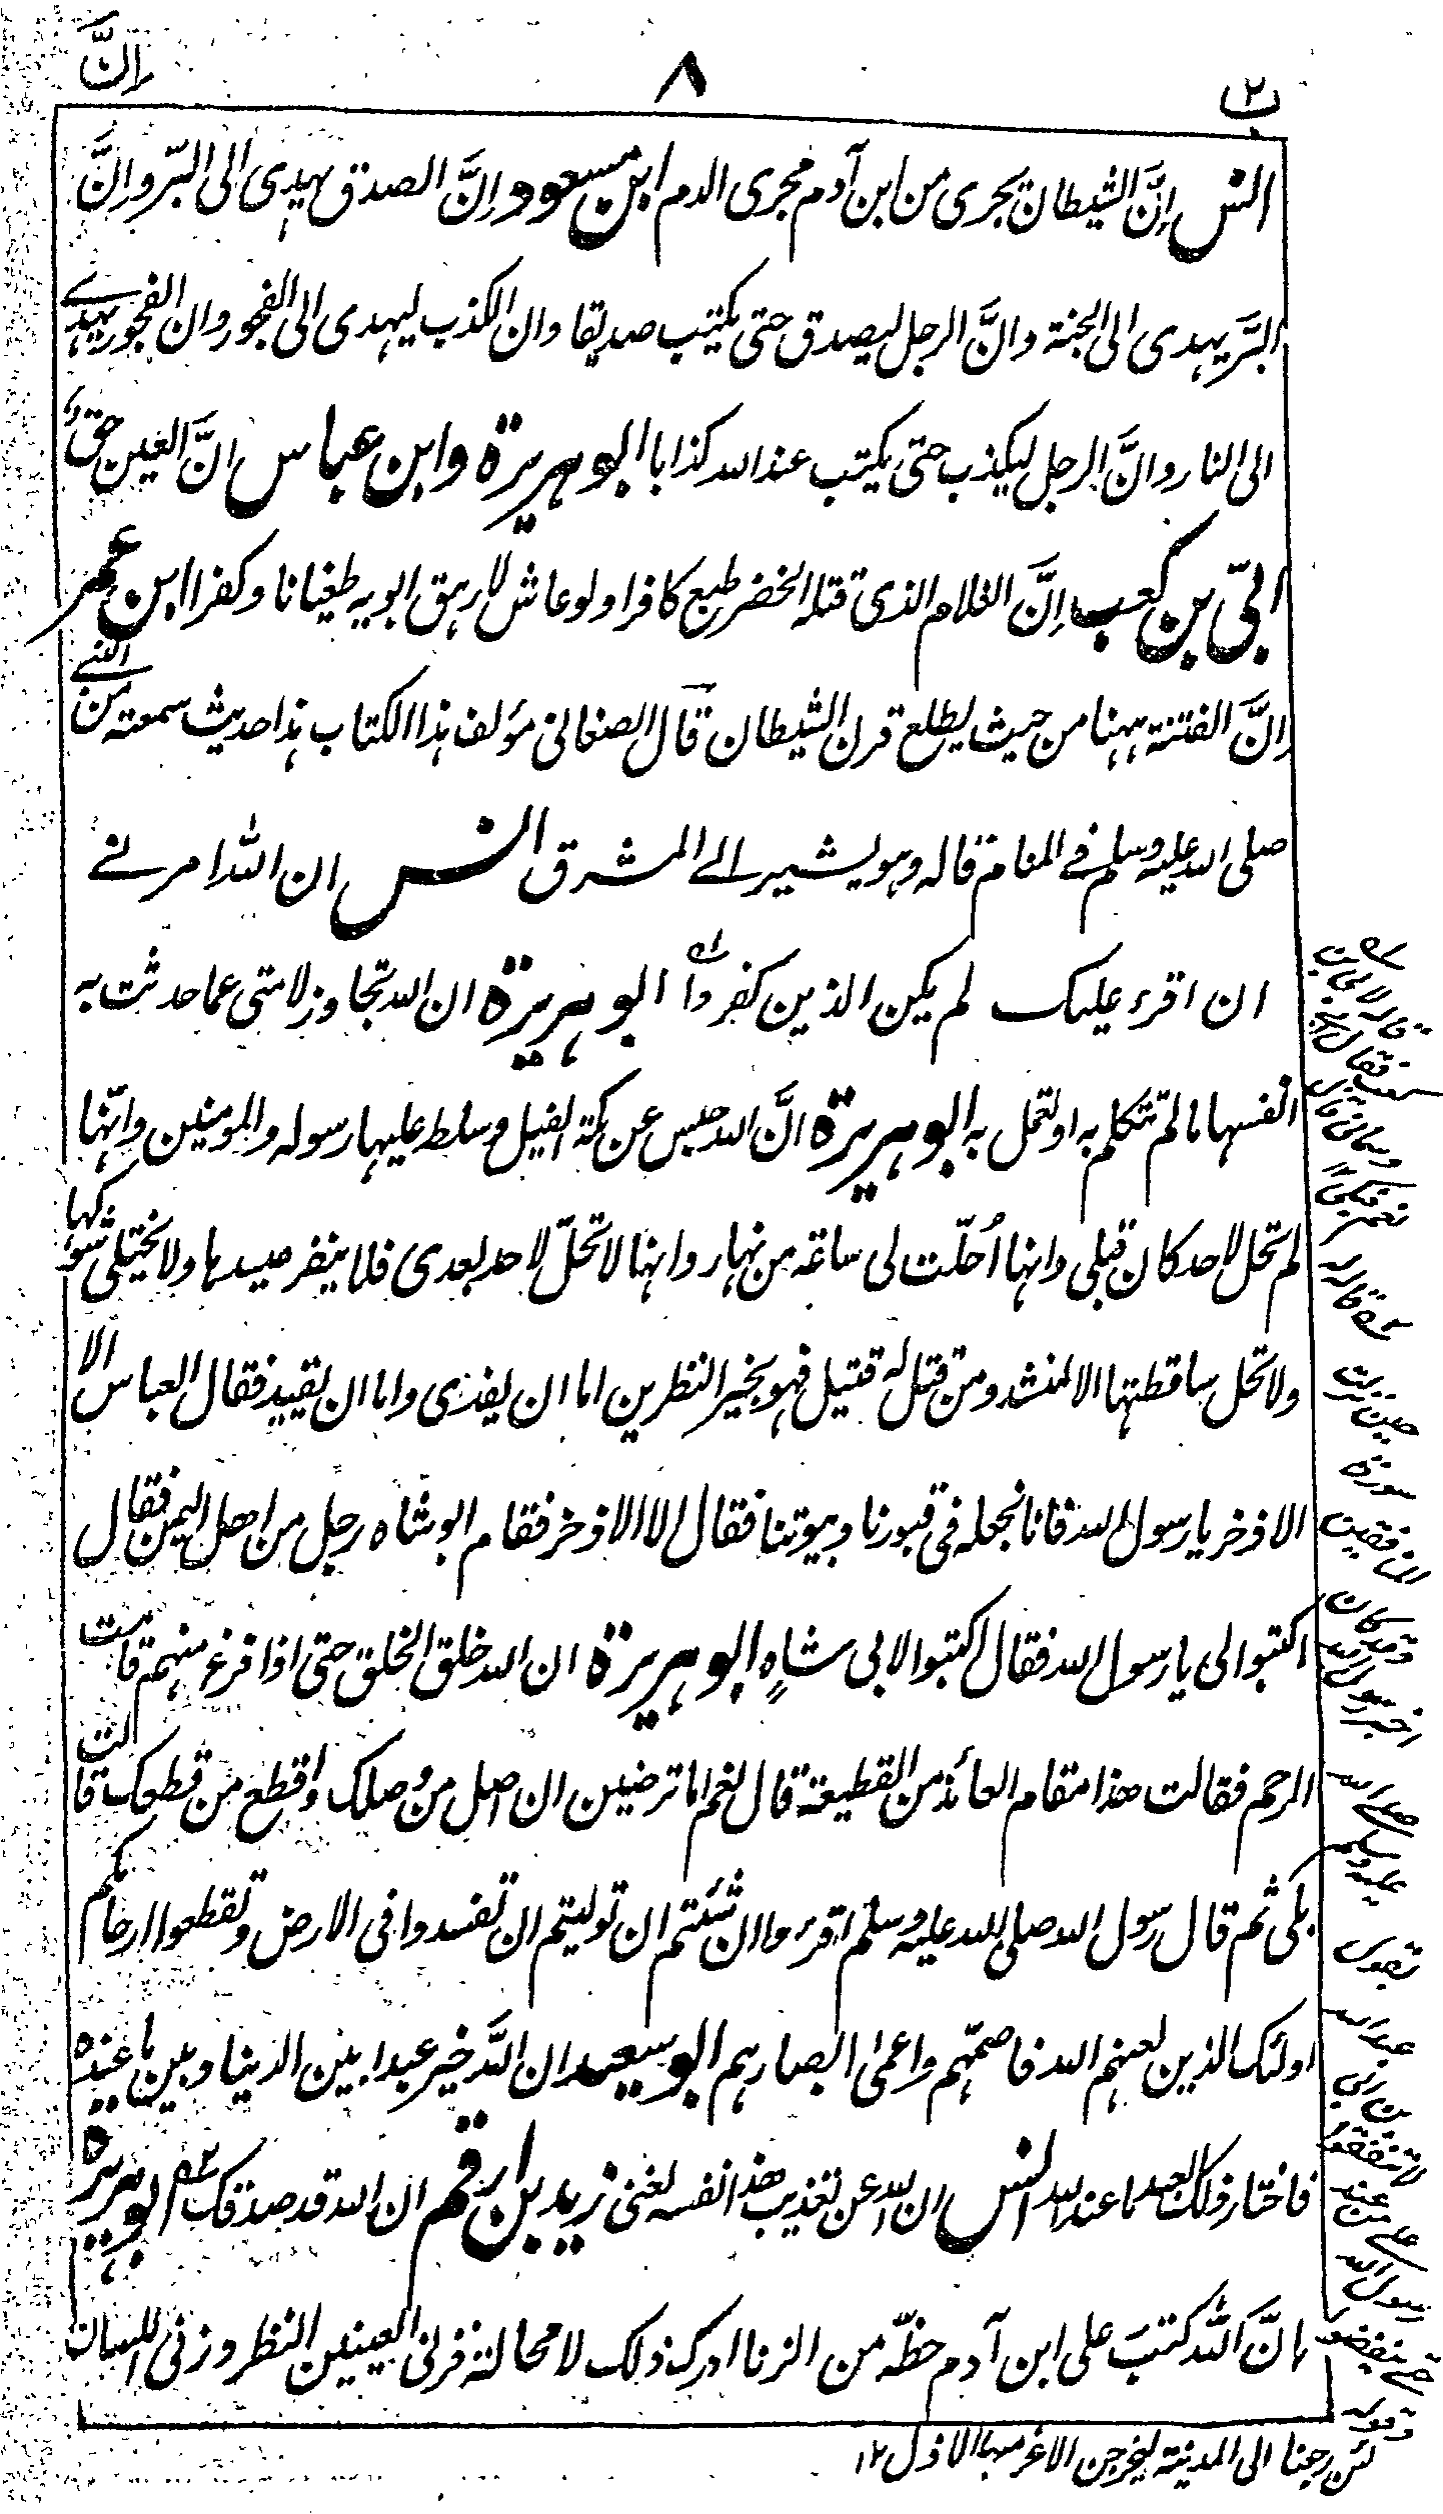 ب٢
٨
اِنَّ
انس اِنَّ الشیطان یجری من ابن آدم مجری الدم ابن مسعود اِنَّ الصدق یهدی الی البّر واِنَّ
البَّر یهدی الی الجنة وانَّ الرجل لیصدق حتی یکتب صدیقا وان الکذب لیهدی الی الفجور وان الفجور یهدے
الی النار وانَّ الرجل لیکذب حتی یکتب عند الله کذابا ابو هریرة وابن عباس انَّ العین حق
ابیّ بن کعب اِنَّ الغلام الذی قتله الخضر طبع کافرا ولو عاش لارهق ابویه طغیانا وکفرا ابن عمر
اِنَّ الفتنة ههنا من حیث یطلع قرن الشیطان قال الصغانی مؤلف هذا الکتاب هذا حدیث سمعته من النبے
صلی الله علیه وسلم فے المنام قاله وهو یشیر الے المشرق انس ان الله امرنے
ان اقرء علیک لم یکن الذین کفروا ابو هریرة ان الله تجاوز لامتی عما حدثت به
انفسها مالم تتکلم به او تعمل به ابو هریرة انَّ الله حبس عن مکة الفیل وسلط علیها رسوله والمومنین وانّها
لم تحل لاحد کان قبلی وانها اُحلّت لی ساعة من نهار وانها لا تحلّ لاحد بعدی فلا ینفر صیدها ولا یختلی شوکها
ولا تحل ساقطتها الا لمنشد ومن قتل له قتیل فهو بخیر النظرین اما ان یفدی واما ان یقید فقال العباس الا
الاذخر یا رسول الله فانا نجعله فی قبورنا وبیوتنا فقال الا الاذخر فقام ابو شاه رجل من اهل الیمن فقال
اکتبوا لی یا رسول الله فقال اکتبوا لابی شاهٍ ابو هریرة ان الله خلق الخلق حتی اذا فرغ منهم قامت
الرحم فقالت هذا مقام العائذ من القطیعة قال نعم اما ترضین ان اصل من وصلک واقطع من قطعک قالت
بلی ثم قال رسول الله صلی الله علیه وسلم اقرءوا ان شئتم ان تولیتم ان تفسدوا فی الارض وتقطعوا ارحامکم
اولئک الذین لعنهم الله فاصمّهم واعمیٰ ابصارهم ابو سعید ان اللَّه خیر عبدا بین الدنیا وبین ما عنده
فاختار ذلک العبد ما عند الله انس ان الله عن تعذیب هذا نفسه لغنی زید بن ارقم ان الله قد صدقک ابو هریرة
انَّ اللَّه کتبَ علی ابن آدم حظّه من الزنا ادرک ذلک لا محالة فزنی العینین النظر وزنی اللسان
قاله لابی بن
کعب فقال
وسمانی قال
نعم فبکی
قاله
حین نزلت
سورة
المنافقین
وقد کان
اخبر رسول الله
صلے الله
علیه وسلم
بقول
عبد الله
بن ابی
لا تنفقوا
علے من عند
رسول الله
حتے ینفضوا
وقوله
لئن رجعنا الی المدینة لیخرجن الاعز منها الاذل ١٢